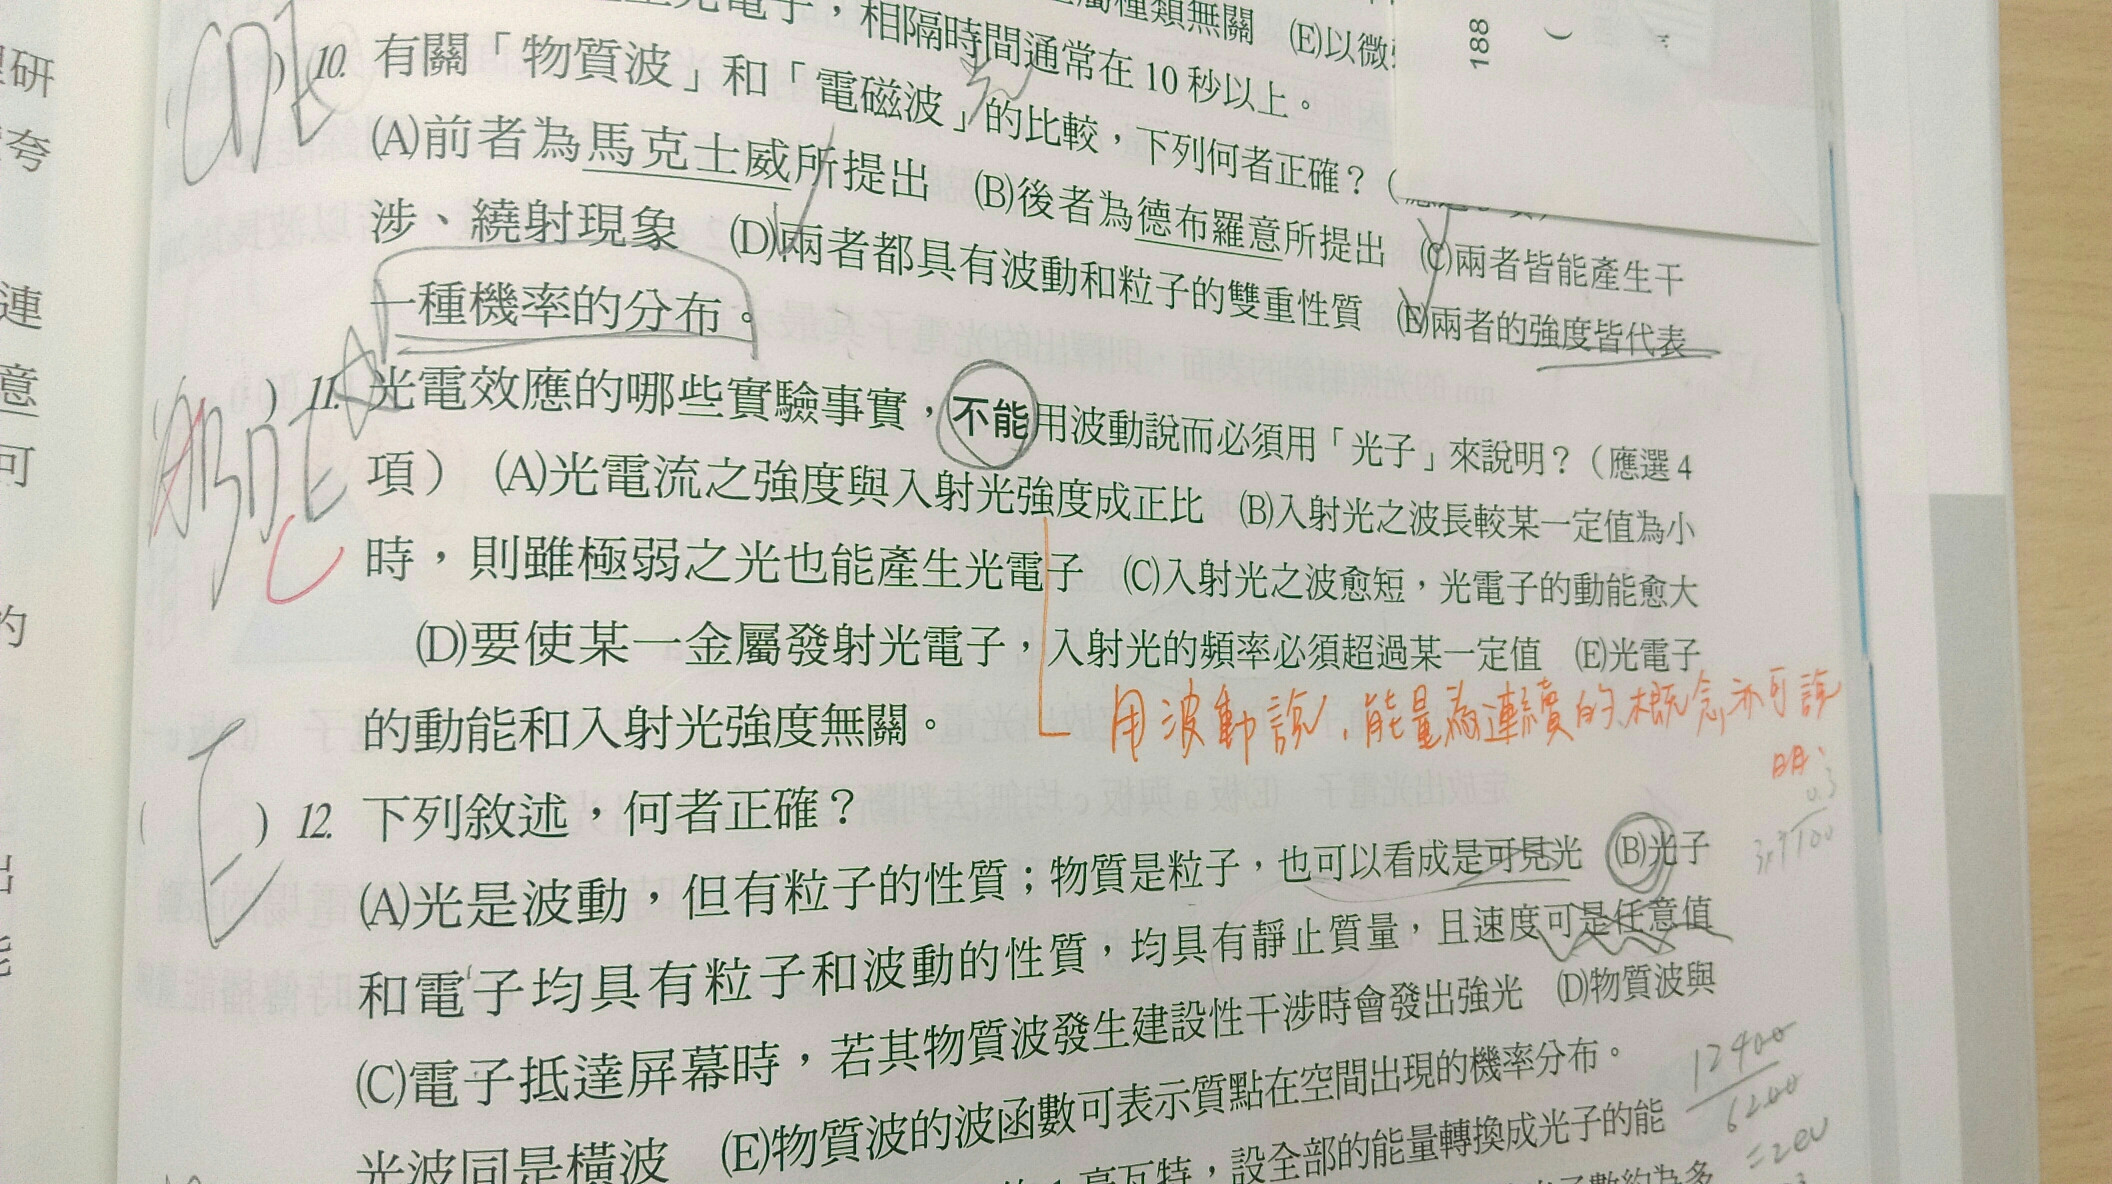 光電子，相隔時間通常在10秒以上。
屬種類無關 (E)以微
188
CDE
) 10. 有關「物質波」和「電磁波」的比較，下列何者正確？(
(A)前者為馬克士威所提出 (B)後者為德布羅意所提出 (C)兩者皆能產生干
涉、繞射現象 (D)兩者都具有波動和粒子的雙重性質 (E)兩者的強度皆代表
一種機率的分布。
ABDE
C
) 11. 光電效應的哪些實驗事實，不能用波動說而必須用「光子」來說明？（應選4
項） (A)光電流之強度與入射光強度成正比 (B)入射光之波長較某一定值為小
時，則雖極弱之光也能產生光電子 (C)入射光之波愈短，光電子的動能愈大
(D)要使某一金屬發射光電子，入射光的頻率必須超過某一定值 (E)光電子
的動能和入射光強度無關。
用波動說，能量為連續的概念亦可說
明
E
( ) 12. 下列敘述，何者正確？
(A)光是波動，但有粒子的性質；物質是粒子，也可以看成是可見光 (B)光子
和電子均具有粒子和波動的性質，均具有靜止質量，且速度可是任意值
(C)電子抵達屏幕時，若其物質波發生建設性干涉時會發出強光 (D)物質波與
光波同是橫波 (E)物質波的波函數可表示質點在空間出現的機率分布。
12400
6200
=2eV
毫瓦特，設全部的能量轉換成光子的能
子數約為多
研
夸
連
意
可
的